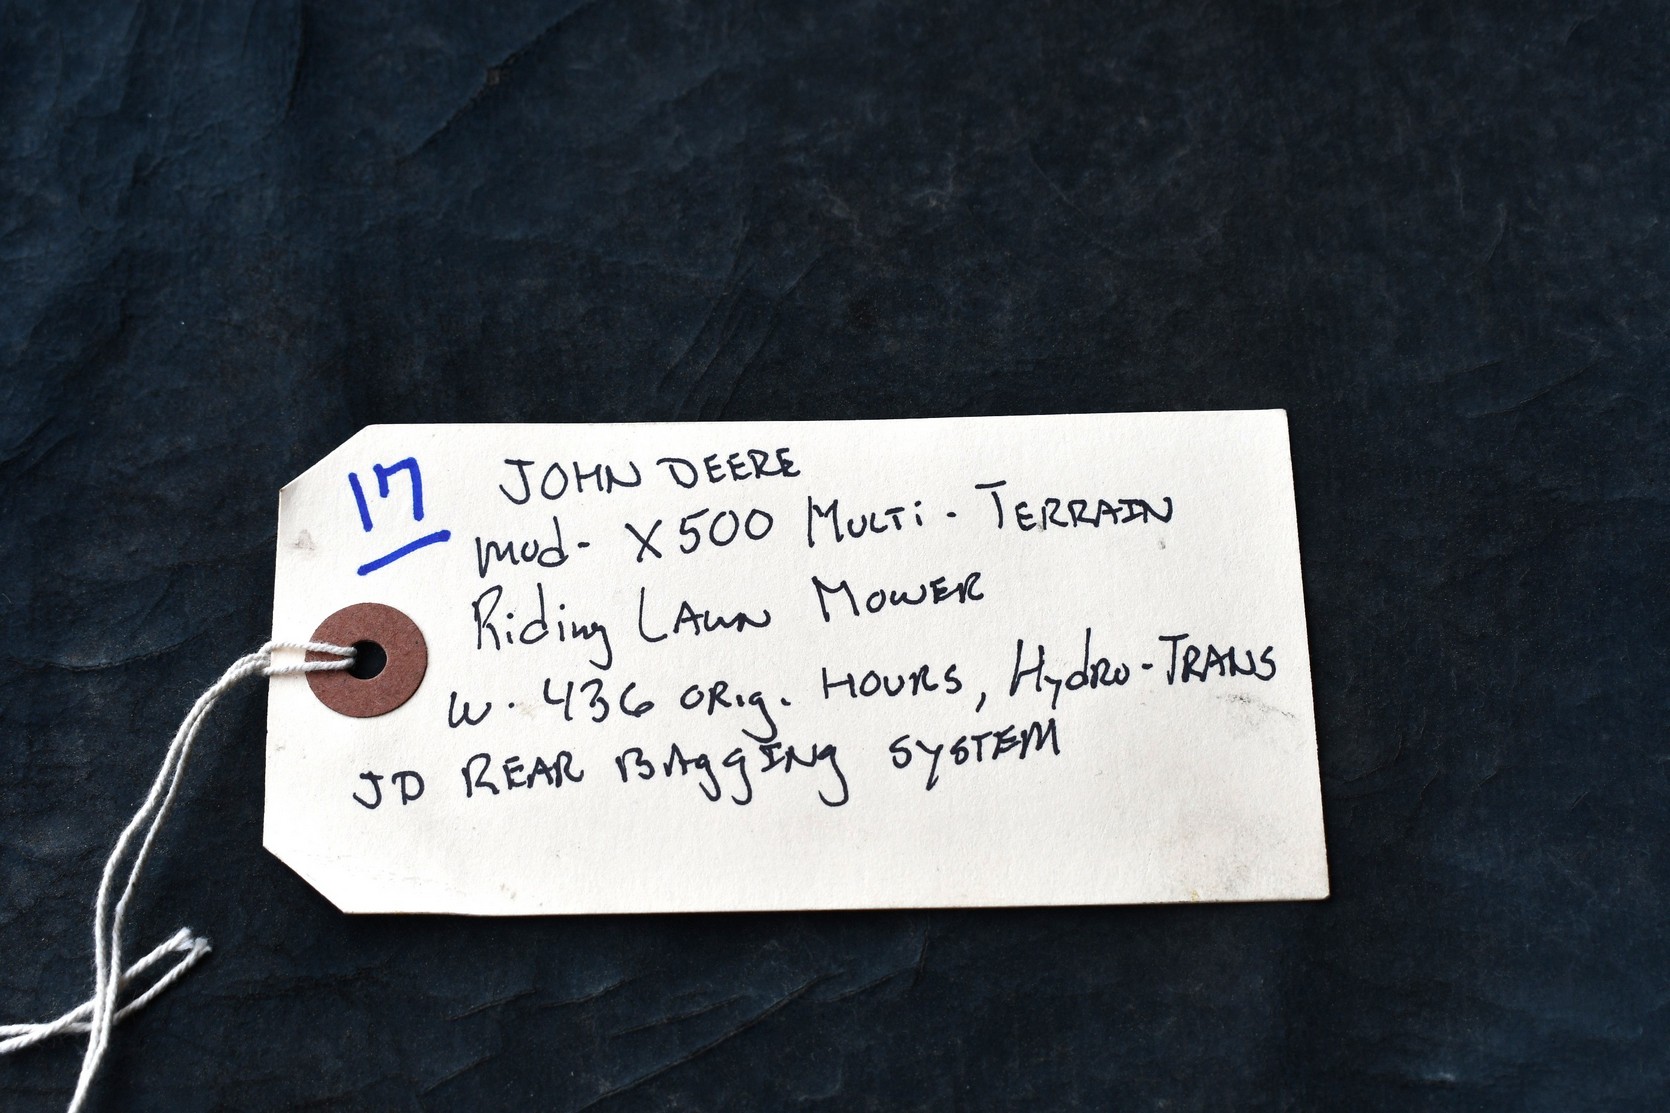 17
JOHN DEERE
mod- X500 MULTi-TERRAIN
Riding LAWN MOWER
W. 436 ORig. HOURS, HydRo-TRANS
JD REAR BAggINg SySTEM